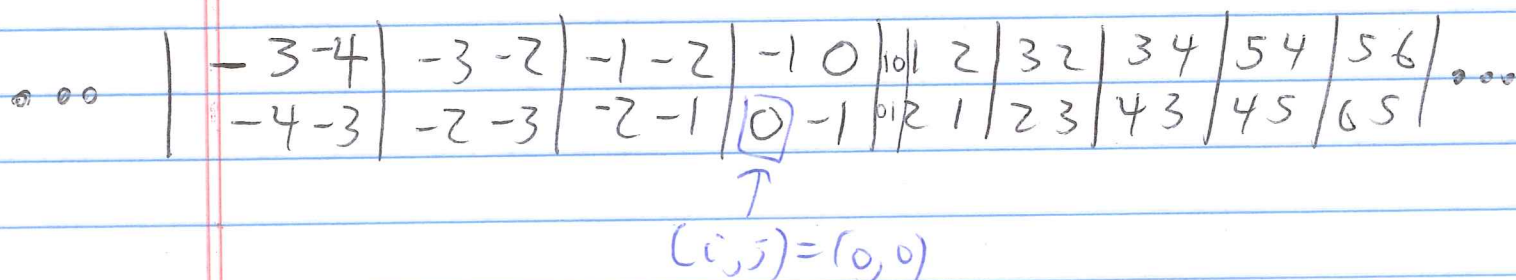 ... | -3 -4 | -3 -2 | -1 -2 | -1 0 | 1 0 | 1 2 | 3 2 | 3 4 | 5 4 | 5 6 | ...
| -4 -3 | -2 -3 | -2 -1 | 0 -1 | 0 1 | 2 1 | 2 3 | 4 3 | 4 5 | 6 5 |
↑
(i,j)=(0,0)